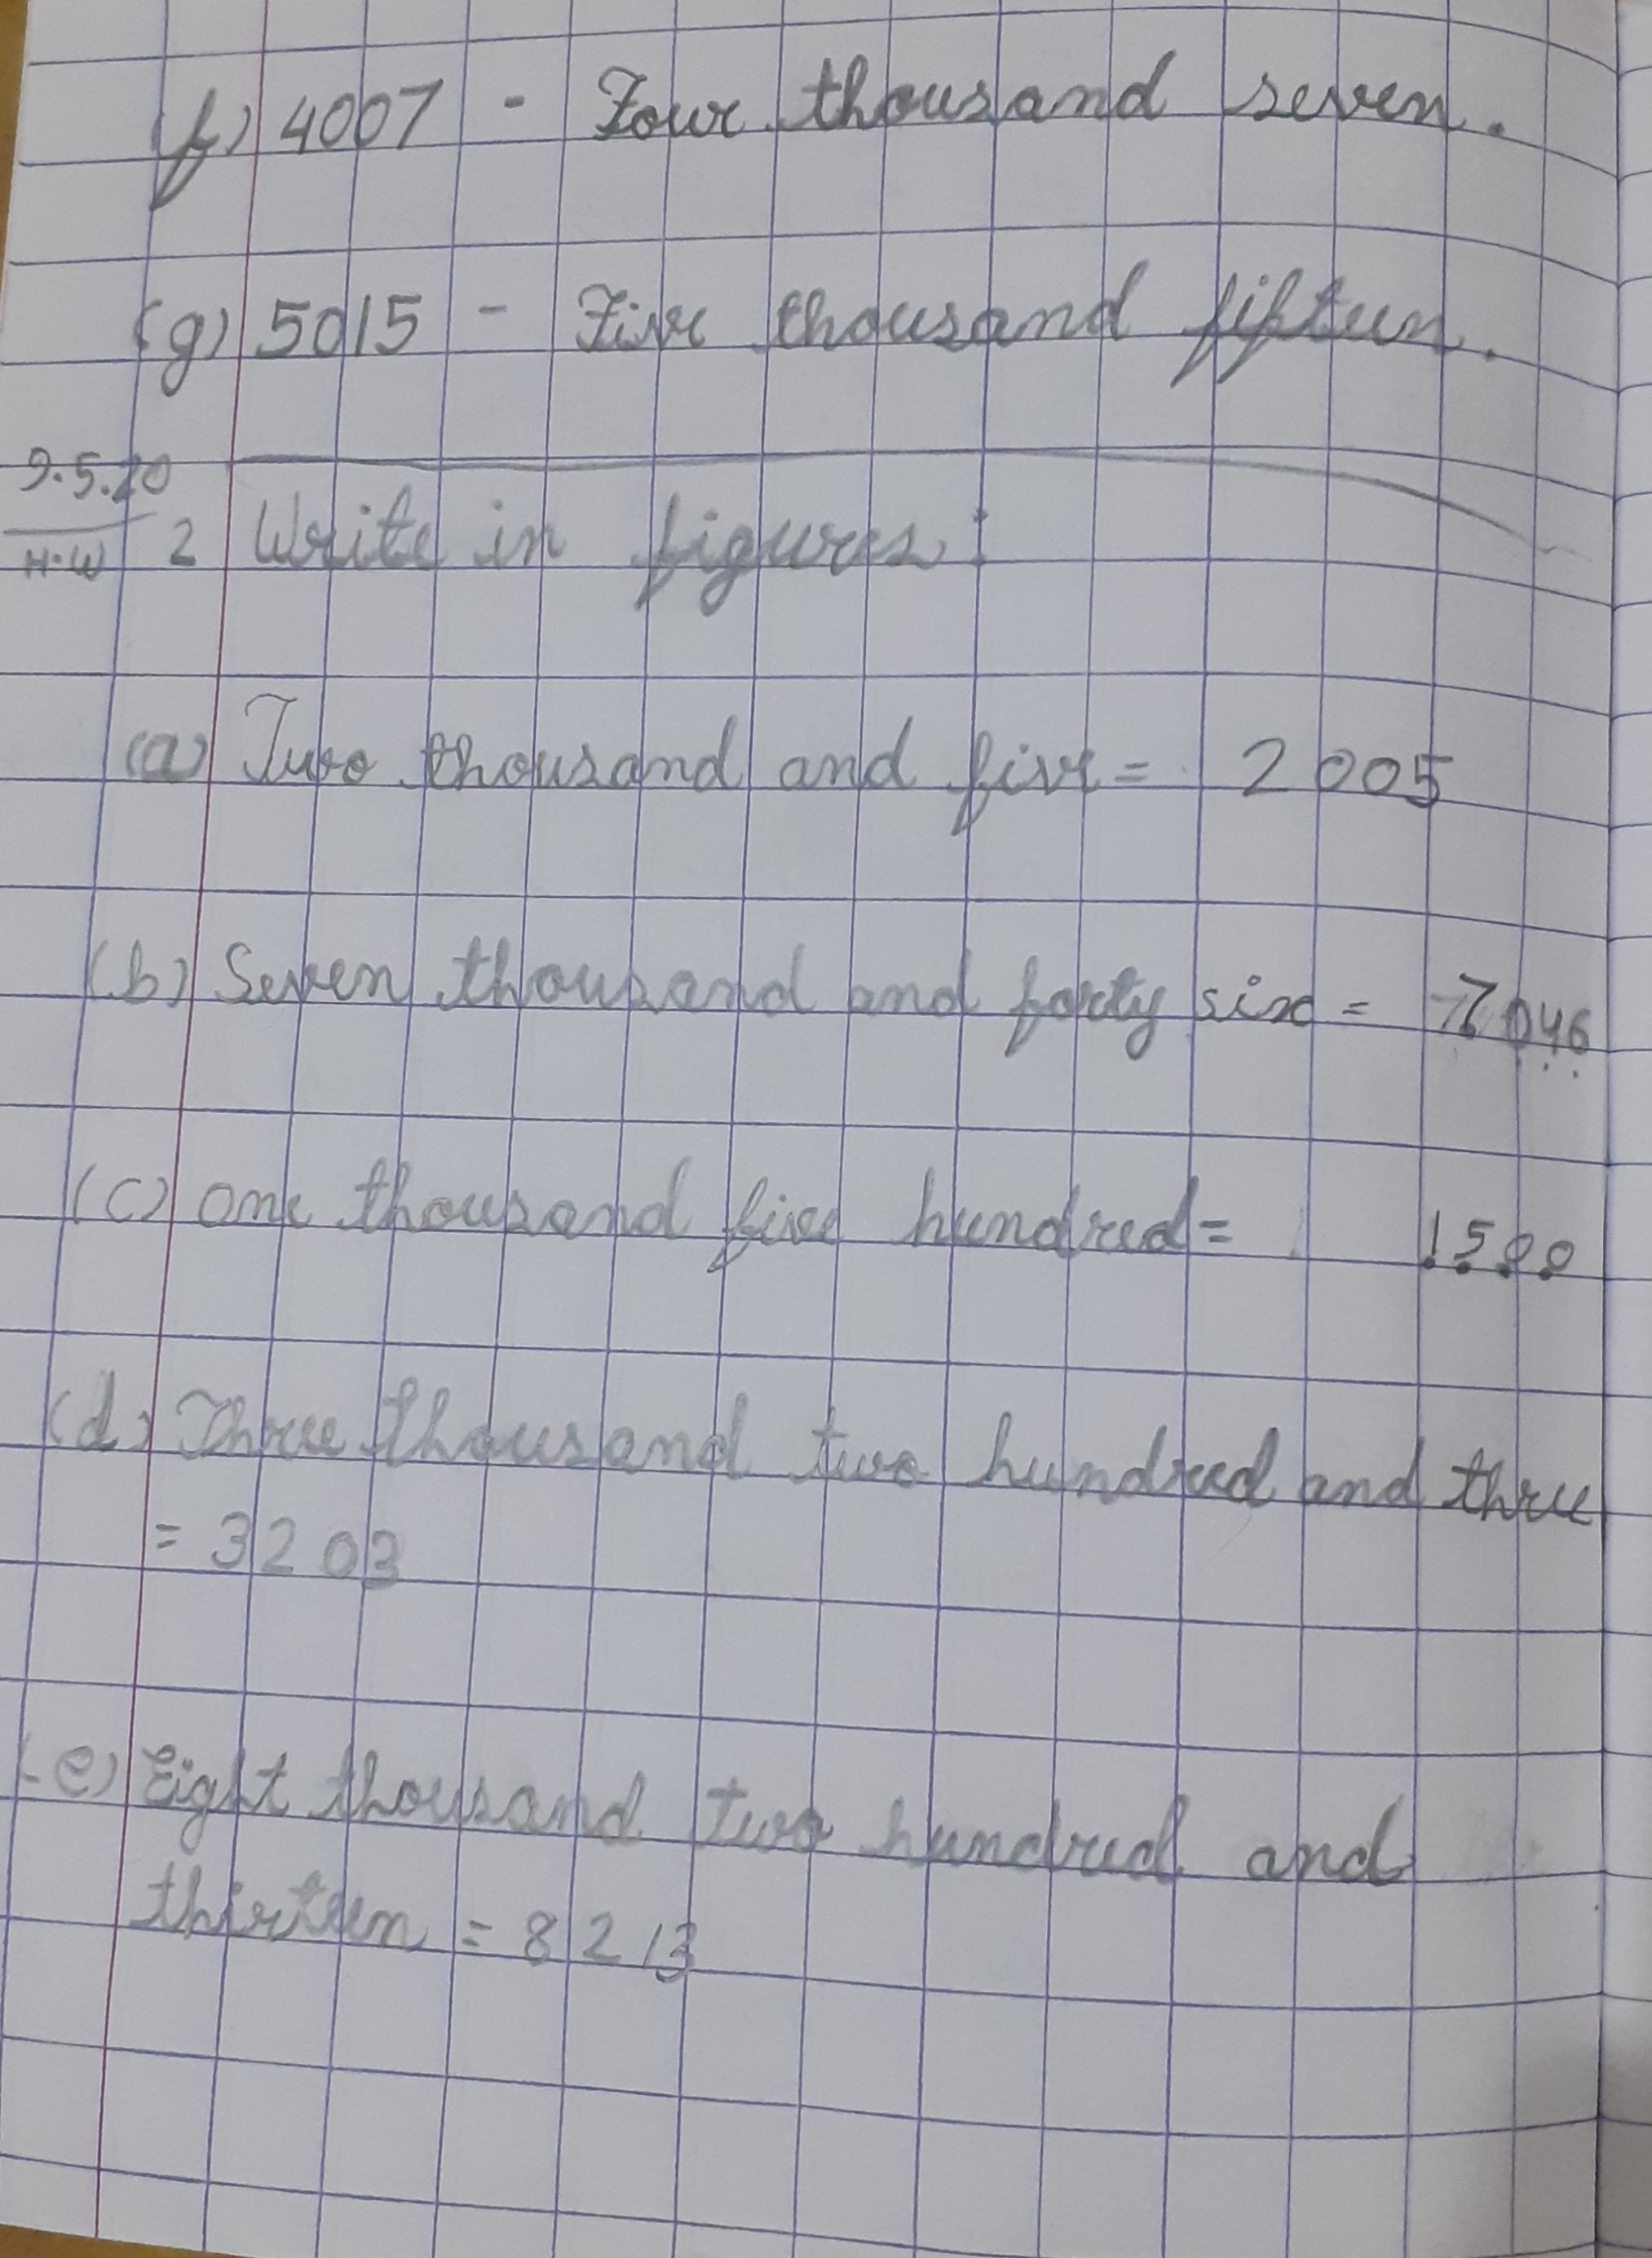 (f) 4007 - Four thousand seven.
(g) 5015 - Five thousand fifteen.
9.5.20
H.W 2 Write in figures:
(a) Two thousand and five = 2005
(b) Seven thousand and forty six = 7046
(c) One thousand five hundred = 1500
(d) Three thousand two hundred and three
= 3203
(e) Eight thousand two hundred and
thirteen = 8213